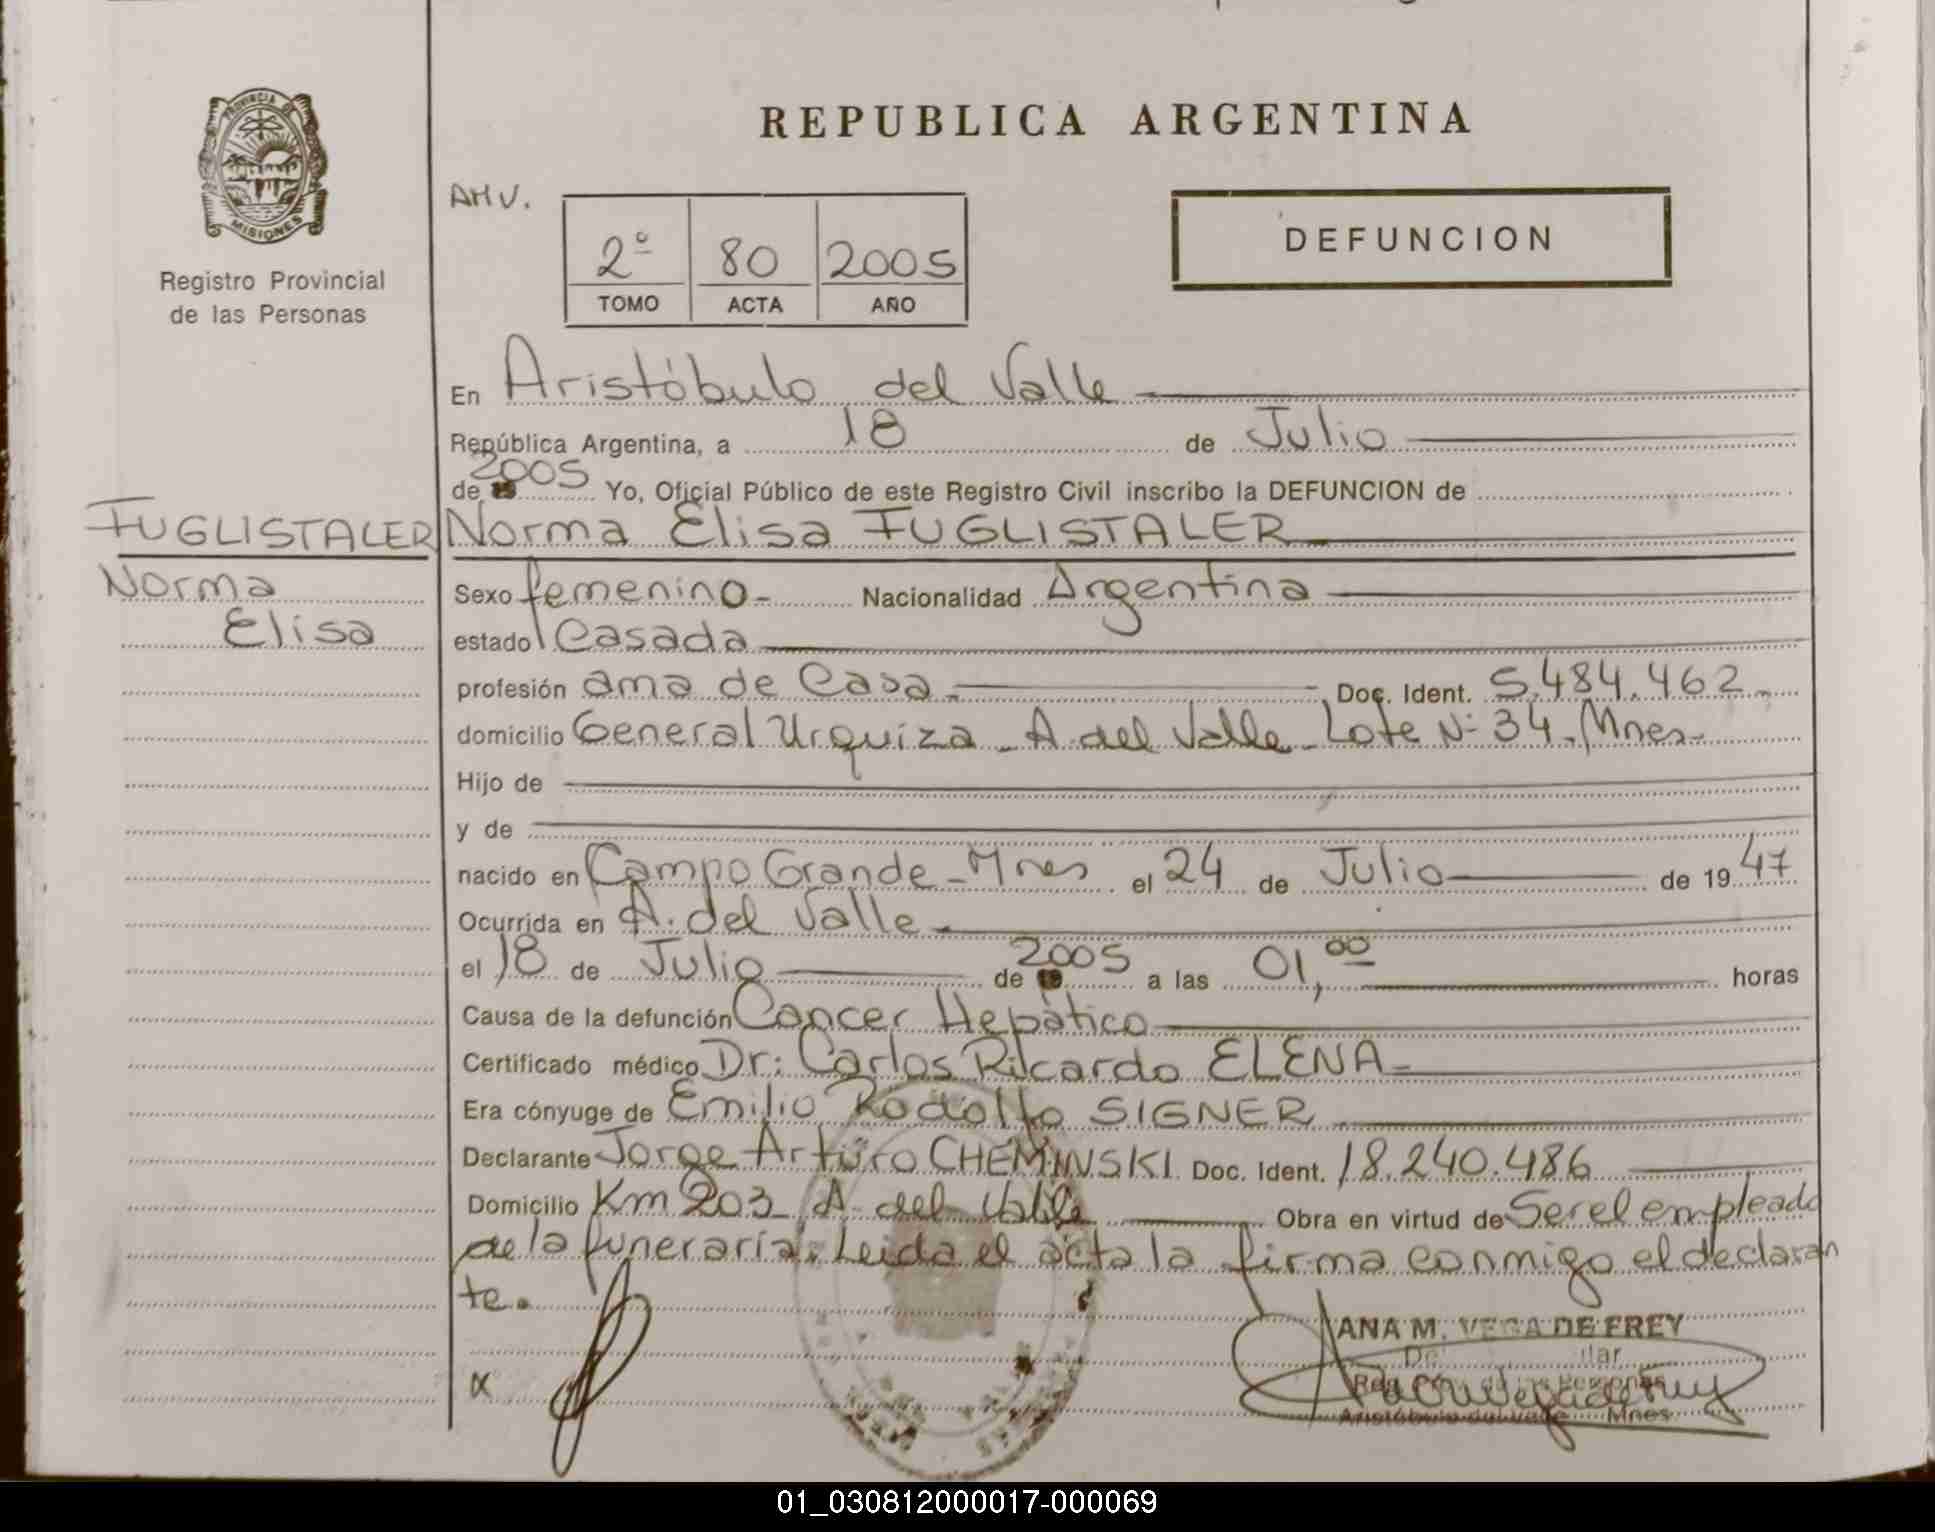 PROVINCIA DE
MISIONES
Registro Provincial
de las Personas
REPUBLICA ARGENTINA
AHV.
2º 80 2005
TOMO ACTA AÑO
DEFUNCION
En Aristóbulo del Valle
República Argentina, a 18 de Julio
de 2005 Yo, Oficial Público de este Registro Civil inscribo la DEFUNCION de
FUGLISTALER Norma Elisa FUGLISTALER
Norma
Elisa
Sexo femenino- Nacionalidad Argentina
estado Casada
profesión ama de Casa- Doc. Ident. 5.484.462-
domicilio General Urquiza - A. del Valle - Lote Nº 34. Mnes-
Hijo de
y de
nacido en Campo Grande - Mnes el 24 de Julio de 1947
Ocurrida en A. del Valle
el 18 de Julio de 2005 a las 01,00 horas
Causa de la defunción Cancer Hepàtico
Certificado médico Dr: Carlos Ricardo ELENA-
Era cónyuge de Emilio Rodolfo SIGNER
Declarante Jorge Arturo CHEMINSKI Doc. Ident. 18.240.486
Domicilio Km 203 A. del Valle Obra en virtud de Ser el empleado
de la funeraria. Leida el acta la firma conmigo el declaran
te.
ANA M. VEGA DE FREY
Aristóbulo del Valle Mnes
01_030812000017-000069